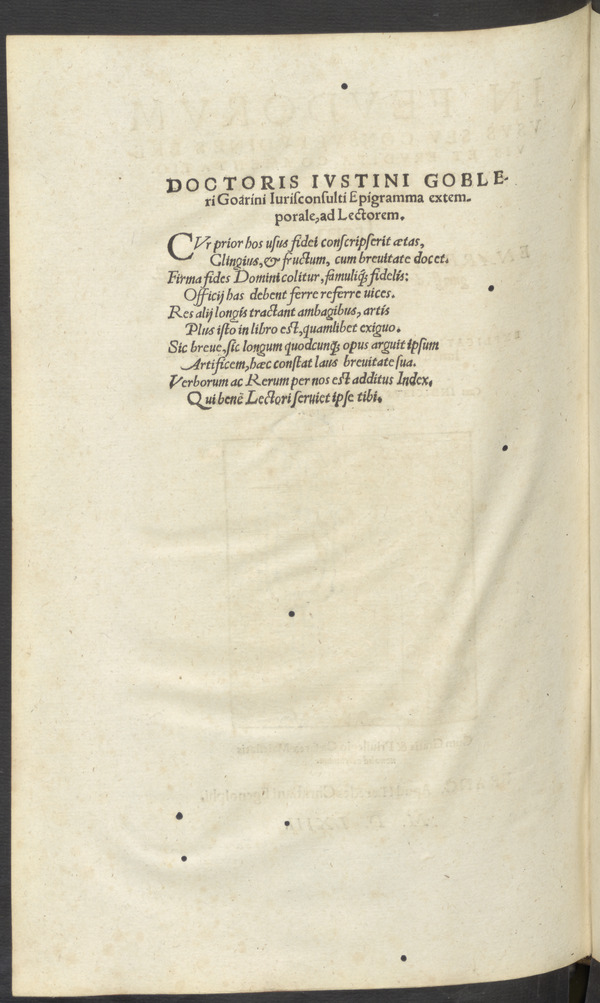 DOCTORIS IVSTINI GOBLE-
ri Goarini Iuriſconſulti Epigramma extem-
porale, ad Lectorem.
CVr prior hos uſus fidei conſcripſerit ætas,
Clingius, & fructum, cum breuitate docet.
Firma fides Domini colitur, famuliq́; fidelis:
Officij has debent ferre referre uices.
Res alij longis tractant ambagibus, artis
Plus iſto in libro eſt, quamlibet exiguo.
Sic breue, ſic longum quodcunq; opus arguit ipſum
Artificem, hæc conſtat laus breuitate ſua.
Verborum ac Rerum per nos eſt additus Index,
Qui benè Lectori ſeruiet ipſe tibi.